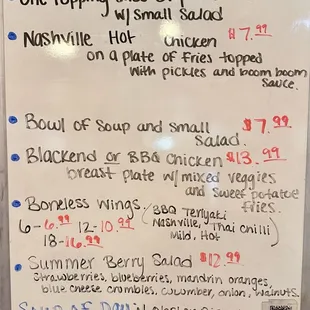 One Topping
w/ Small Salad
Nashville Hot Chicken $7.99
on a plate of fries topped
with pickles and boom boom
sauce.
Bowl of Soup and small $7.99
Salad.
Blackend or BBQ Chicken $13.99
breast plate w/ mixed veggies
and sweet potatoe
fries.
Boneless wings.
6-6.99 12-10.99
18-16.99
(BBQ Teriyaki
Nashville, Thai chilli
Mild, Hot)
Summer Berry Salad $12.99
strawberries, blueberries, mandrin oranges,
blue cheese crombles, cucumber, onion, walnuts.